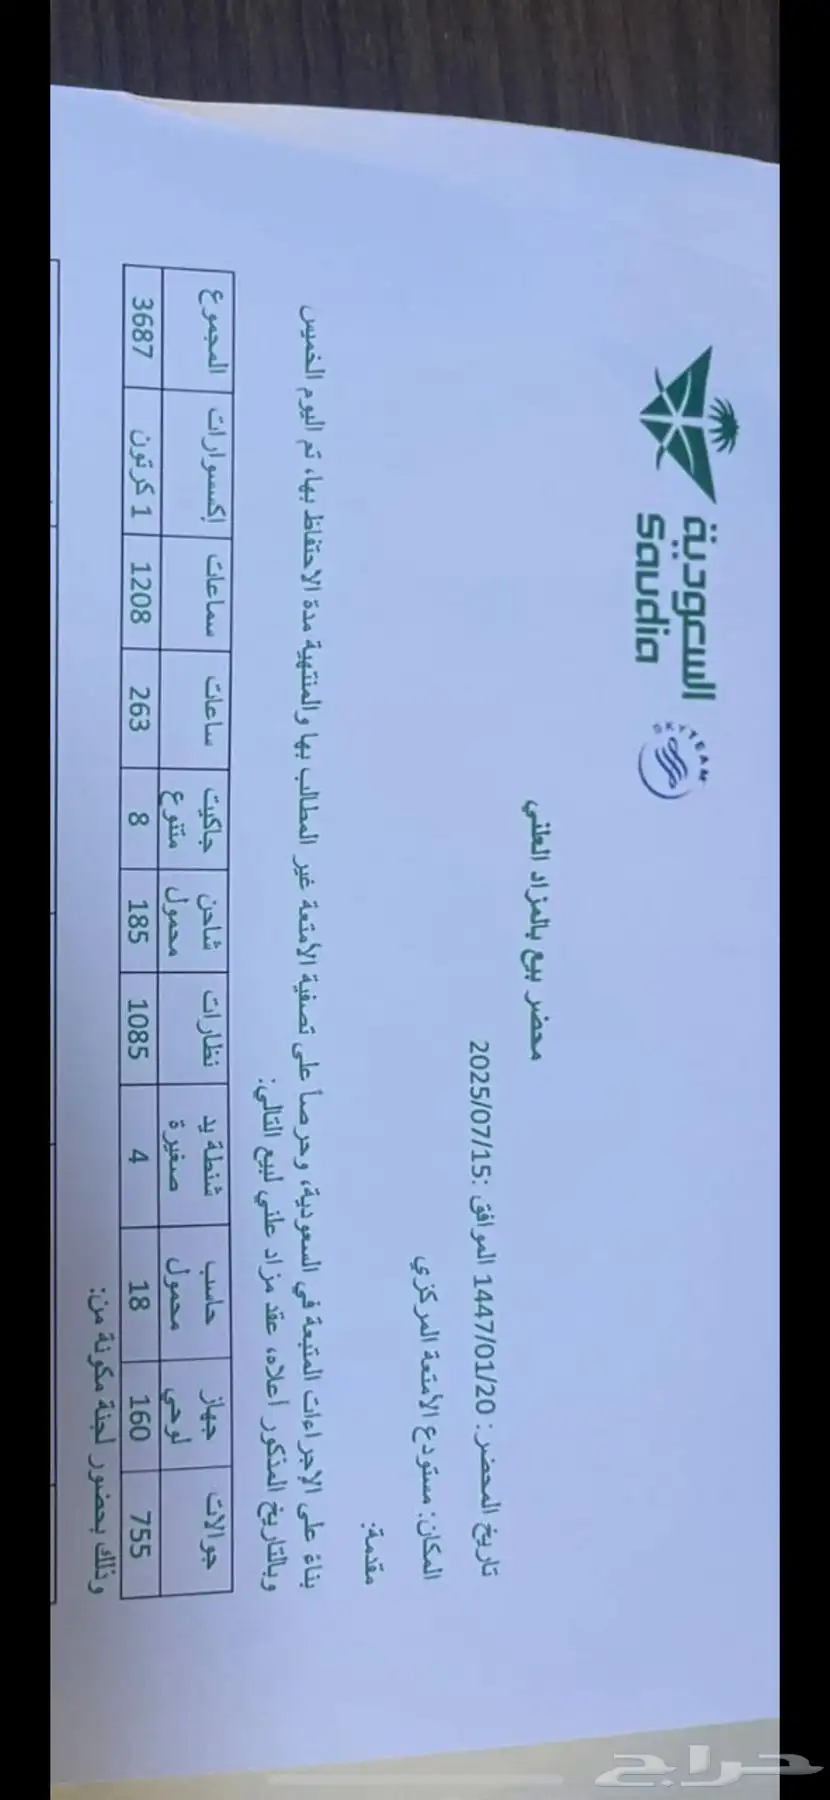 السعودية
saudia
SKYTEAM
محضر بيع بالمزاد العلني
تاريخ المحضر: 1447/01/20 الموافق: 2025/07/15
المكان: مستودع الأمتعة المركزي
مقدمة:
بناءً على الإجراءات المتبعة في السعودية، وحرصاً على تصفية الأمتعة غير المطالب بها والمنتهية مدة الاحتفاظ بها، تم اليوم الخميس
وبالتاريخ المذكور أعلاه، عقد مزاد علني لبيع التالي:
جوالات جهاز لوحي حاسب محمول شنطة يد صغيرة نظارات شاحن محمول جاكيت متنوع ساعات سماعات إكسسوارات المجموع
755 160 18 4 1085 185 8 263 1208 1 كرتون 3687
وذلك بحضور لجنة مكونة من:
حراج